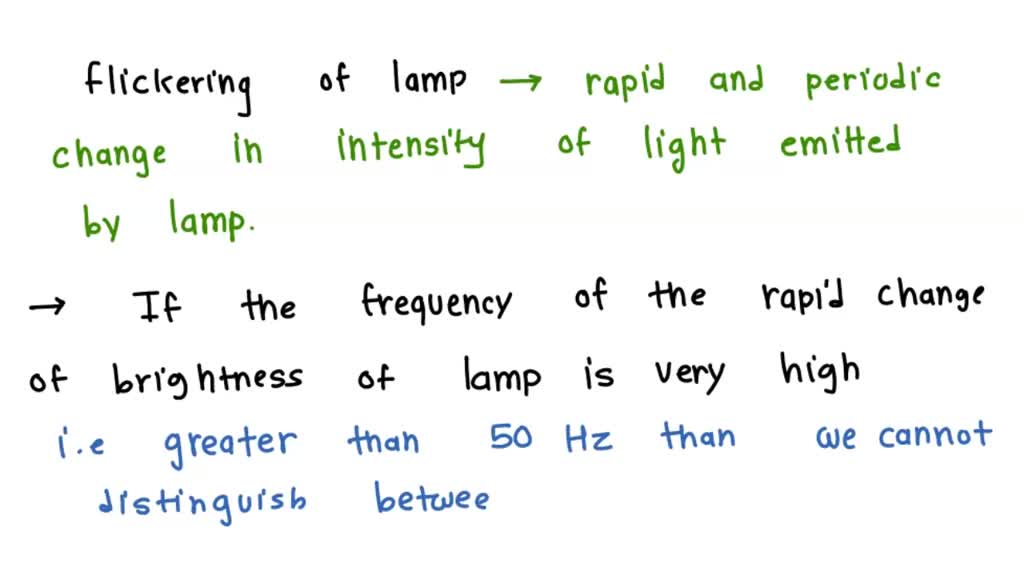 flickering of lamp → rapid and periodic
change in intensity of light emitted
by lamp.
→ If the frequency of the rapid change
of brightness of lamp is very high
i.e greater than 50 Hz than we cannot
distinguish betwee